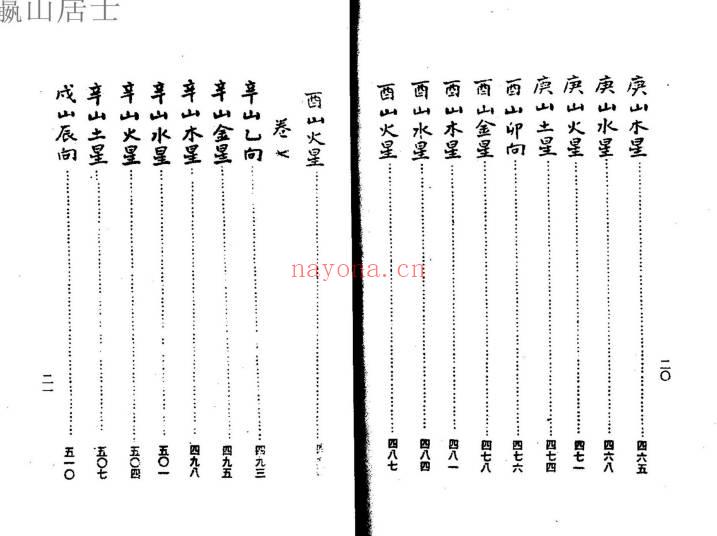 山居士
庚山木星………四六五
庚山水星………四六八
庚山火星………四七一
庚山土星………四七四
酉山卯向………四七六
酉山金星………四七八
酉山木星………四八一
酉山水星………四八四
酉山火星………四八七
二〇
酉山火星………四
卷七
辛山乙向………四九三
辛山金星………四九五
辛山木星………四九八
辛山水星………五〇一
辛山火星………五〇四
辛山土星………五〇七
戌山辰向………五一〇
二一
nayona.cn